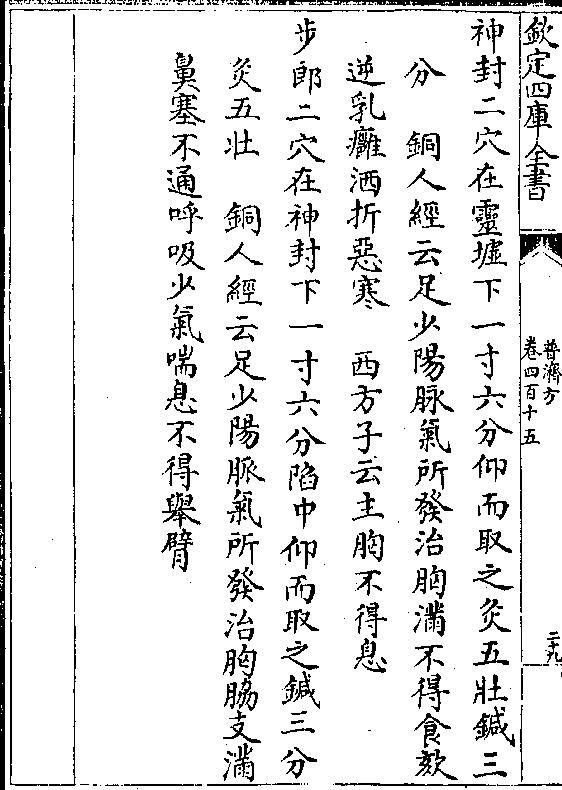 欽定四庫全書
普濟方
卷四百十五
二十九
神封二穴在靈墟下一寸六分仰而取之灸五壯鍼三
分　銅人經云足少陽脉氣所發治胸滿不得食欬
逆乳癰洒折惡寒　西方子云主胸不得息
步郎二穴在神封下一寸六分陷中仰而取之鍼三分
灸五壯　銅人經云足少陽脈氣所發治胸脇支滿
鼻塞不通呼吸少氣喘息不得舉臂